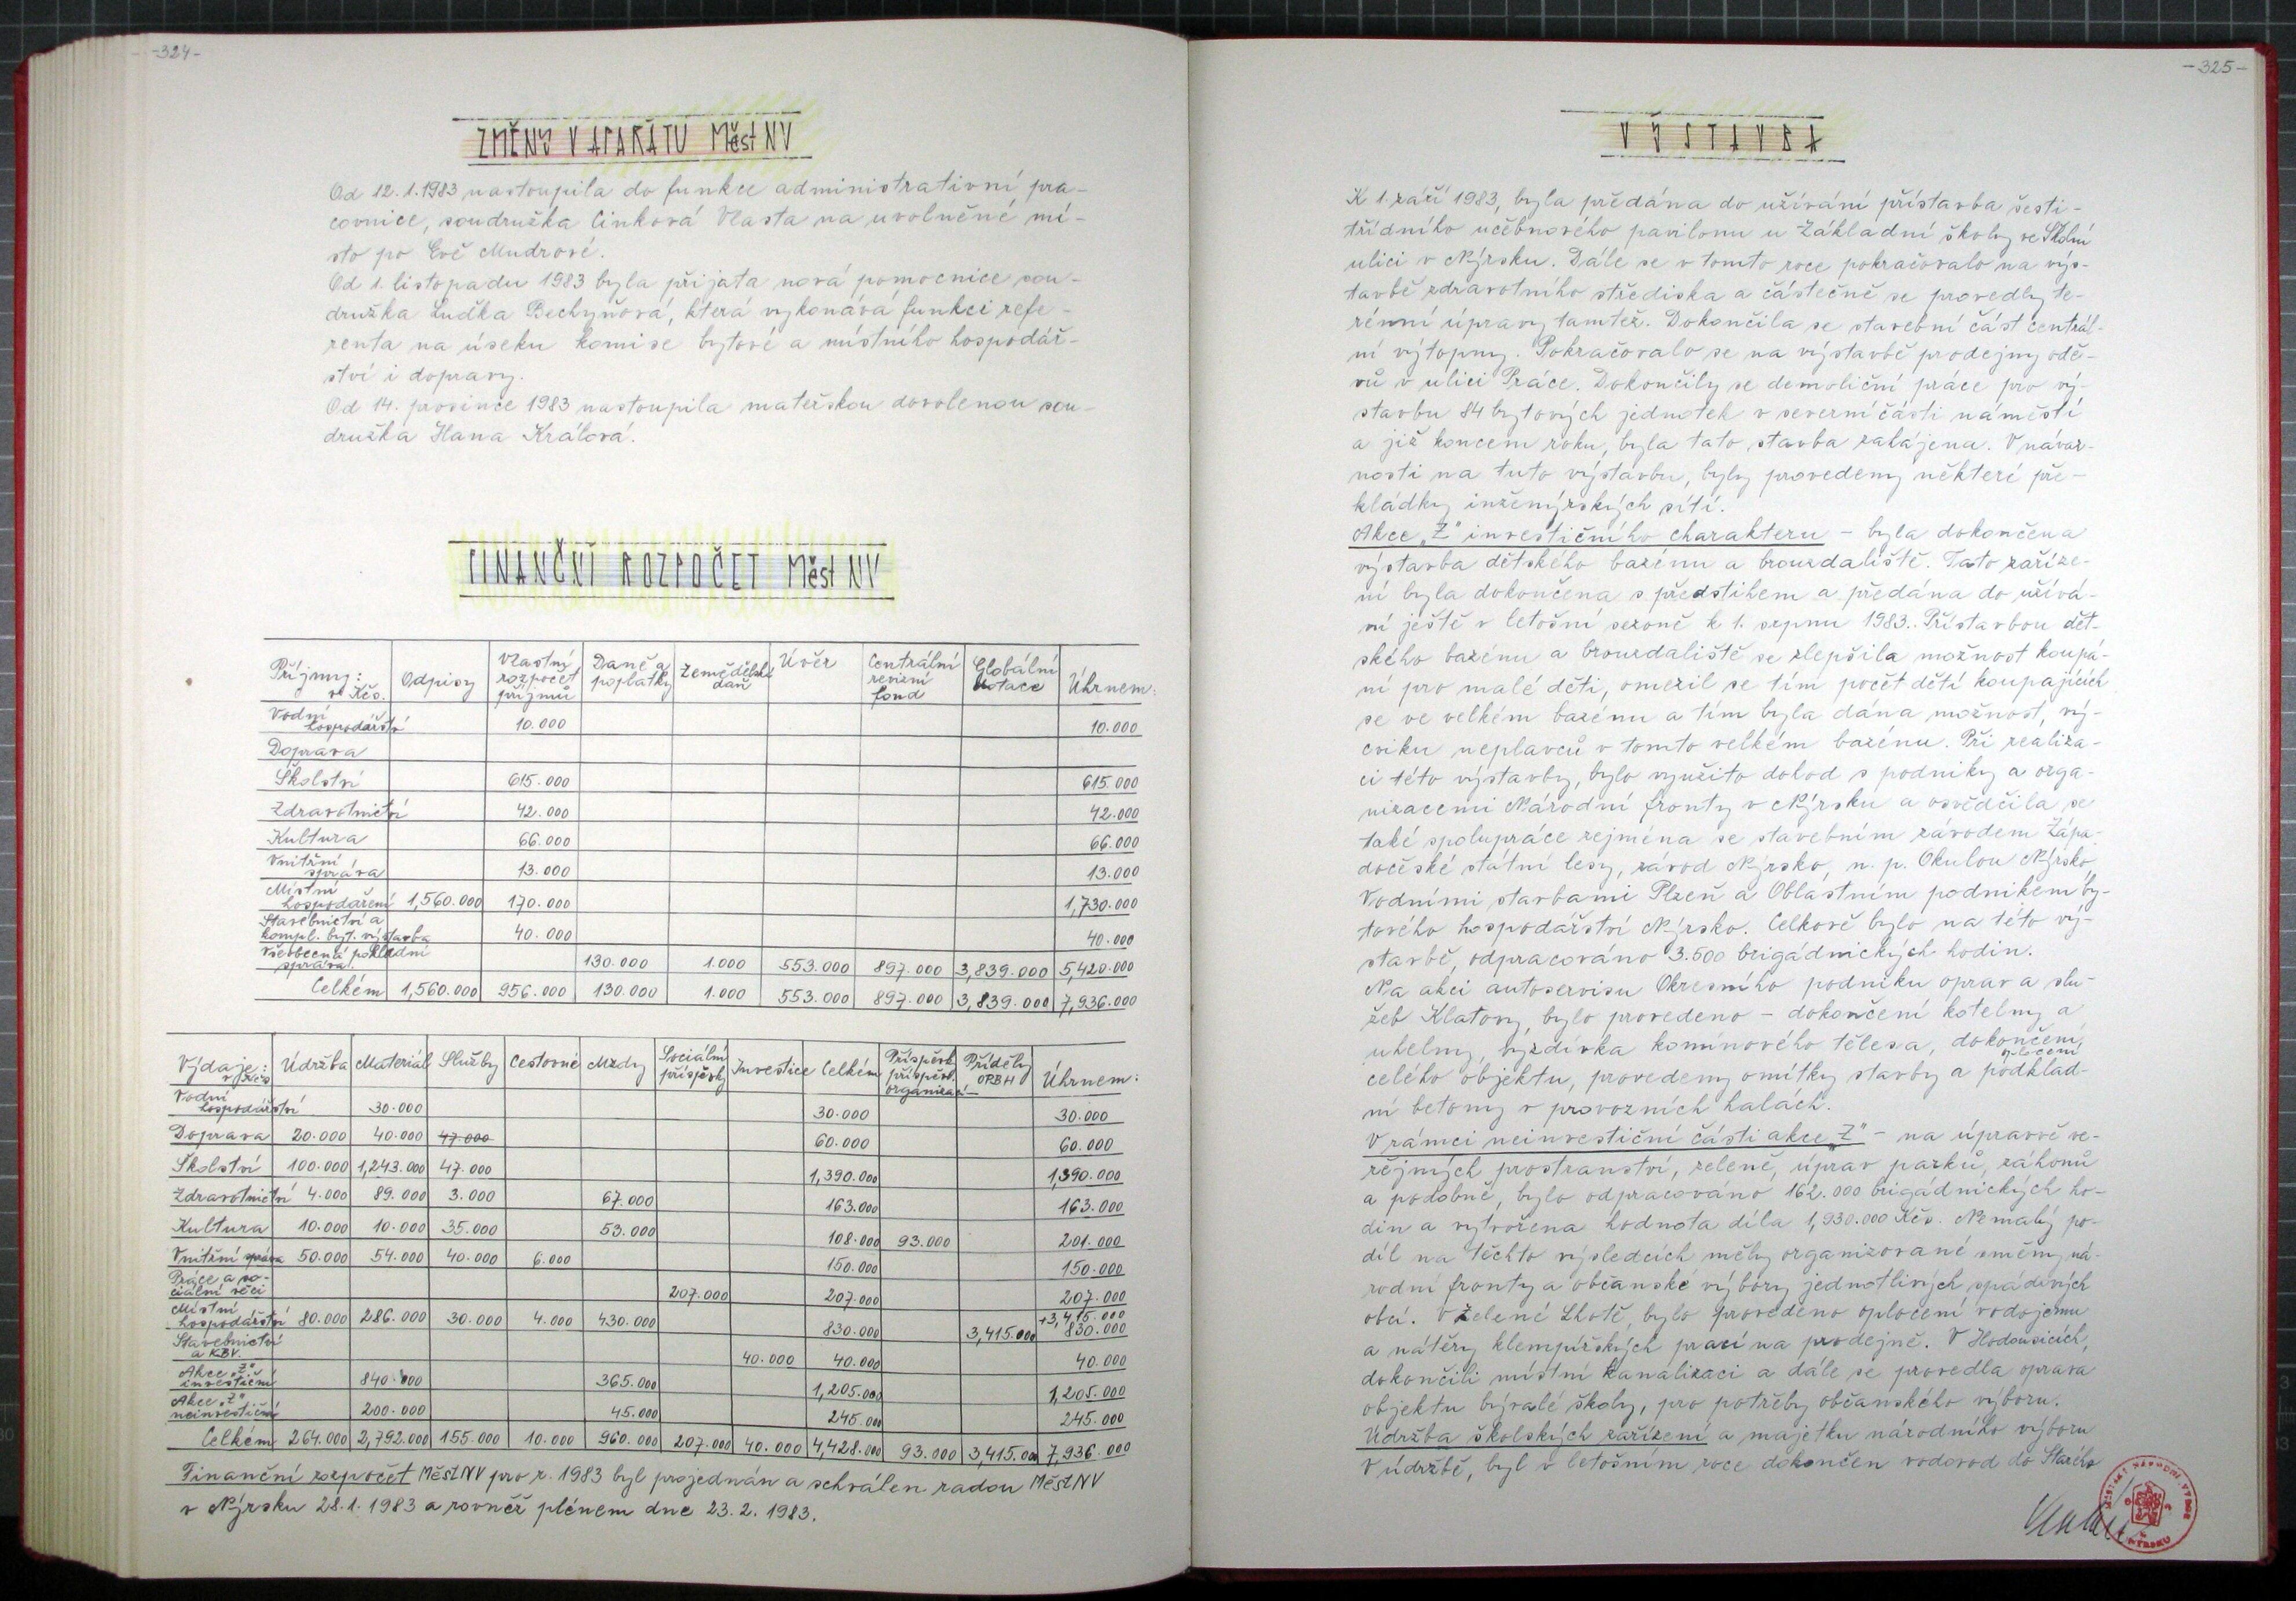 -324-
ZMĚNY V APARÁTU MěstNV
Od 12.1.1983 nastoupila do funkce administrativní pra-
covnice, soudružka Cinková Vlasta na uvolněné mí-
sto po Evě Mudrové.
Od 1. listopadu 1983 byla přijata nová pomocnice sou-
družka Luďka Bechyňová, která vykonává funkci refe-
renta na úseku komise bytové a místního hospodář-
ství i dopravy.
Od 14. prosince 1983 nastoupila mateřskou dovolenou sou-
družka Hana Králová.
FINANČNÍ ROZPOČET MěstNV
Příjmy: v Kčs. Odpisy Vlastní rozpočet příjmů Daně a poplatky Zemědělská daň Úvěr Centrální revizní fond Globální dotace Úhrnem:
Vodní hospodářství 10.000 10.000
Doprava
Školství 615.000 615.000
Zdravotnictví 42.000 42.000
Kultura 66.000 66.000
Vnitřní správa 13.000 13.000
Místní hospodaření 1,560.000 170.000 1,730.000
Stavebnictví a kompl. byt. výstavba 40.000 40.000
Všeobecná pokladní správa. 130.000 1.000 553.000 897.000 3,839.000 5,420.000
Celkém 1,560.000 956.000 130.000 1.000 553.000 897.000 3,839.000 7,936.000
Výdaje: v Kčs Údržba Materiál Služby Cestovné Mzdy Sociální příspěvky Investice Celkém Příspěvk. příspěvk. organizací Příděly OPBH Úhrnem:
Vodní hospodářství 30.000 30.000 30.000
Doprava 20.000 40.000 47.000 60.000 60.000
Školství 100.000 1,243.000 47.000 1,390.000 1,390.000
Zdravotnictví 4.000 89.000 3.000 67.000 163.000 163.000
Kultura 10.000 10.000 35.000 53.000 108.000 93.000 201.000
Vnitřní správa 50.000 54.000 40.000 6.000 150.000 150.000
Práce a so-ciální věci 207.000 207.000 207.000
Místní hospodářství 80.000 286.000 30.000 4.000 430.000 830.000 3,415.000 +3,415.000 830.000
Stavebnictví a KBV. 40.000 40.000 40.000
Akce "Z" investiční 840.000 365.000 1,205.000 1,205.000
Akce "Z" neinvestiční 200.000 45.000 245.000 245.000
Celkém 264.000 2,792.000 155.000 10.000 960.000 207.000 40.000 4,428.000 93.000 3,415.000 7,936.000
Finanční rozpočet MěstNV pro r. 1983 byl projednán a schválen radou MěstNV
v Nýrsku 28.1.1983 a rovněž plénem dne 23.2.1983.
-325-
VÝSTAVBA
K 1. září 1983, byla předána do užívání přístavba šesti-
třídního učebnového pavilonu u Základní školy ve Školní
ulici v Nýrsku. Dále se v tomto roce pokračovalo na výs-
tavbě zdravotního střediska a částečně se provedly te-
rénní úpravy tamtéž. Dokončila se stavební část centrál-
ní výtopny. Pokračovalo se na výstavbě prodejny odě-
vů v ulici Práce. Dokončily se demoliční práce pro vý-
stavbu 84 bytových jednotek v severní části náměstí
a již koncem roku, byla tato stavba zahájena. V návaz-
nosti na tuto výstavbu, byly provedeny některé pře-
kládky inženýrských sítí.
Akce "Z" investičního charakteru - byla dokončena
výstavba dětského bazénu a brouzdaliště. Tato zaříze-
ní byla dokončena s předstihem a předána do užívá-
ní ještě v letošní sezoně k 1. srpnu 1983. Přístavbou dět-
ského bazénu a brouzdaliště se zlepšila možnost koupá-
ní pro malé děti, omezil se tím počet dětí koupajících
se ve velkém bazénu a tím byla dána možnost, vý-
cviku neplavců v tomto velkém bazénu. Při realiza-
ci této výstavby, bylo využito dohod s podniky a orga-
nizacemi Národní fronty v Nýrsku a osvědčila se
také spolupráce zejména se stavebním závodem Zápa-
dočeské státní lesy, závod Nýrsko, n. p. Okulou Nýrsko,
Vodními stavbami Plzeň a Oblastním podnikem by-
tového hospodářství Nýrsko. Celkově bylo na této vý-
stavbě, odpracováno 3.500 brigádnických hodin.
Na akci autoservisu Okresního podniku oprav a slu-
žeb Klatovy, bylo provedeno - dokončení kotelny a
uhelny, vyzdívka komínového tělesa, dokončení oplocení
celého objektu, provedeny omítky stavby a podklad-
ní betony v provozních halách.
V rámci neinvestiční části akce "Z" - na úpravě ve-
řejných prostranství, zeleně, úprav parků, záhonů
a podobně, bylo odpracováno 162.000 brigádnických ho-
din a vytvořena hodnota díla 1,930.000 Kčs. Nemalý po-
díl na těchto výsledcích měly organizované směny ná-
rodní fronty a občanské výbory jednotlivých spádových
obcí. V Zelené Lhotě, bylo provedeno oplocení vodojemu
a nátěry klempířských prací na prodejně. V Hodousicích,
dokončili místní kanalizaci a dále se provedla oprava
objektu bývalé školy, pro potřeby občanského výboru.
Údržba školských zařízení a majetku národního výboru
V údržbě, byl v letošním roce dokončen vodovod do Starého